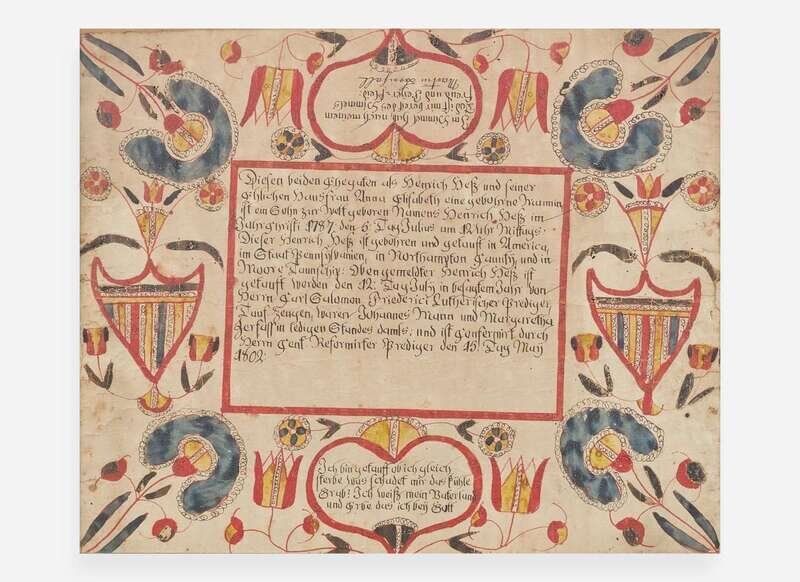 Im Himmel Auch nach meinem
Tod ist mir bereit des Himmels
Freud und Feyer=Kleid
Martin Brechall
Diesen beiden Ehegatten als Henrich Heß und seiner
Ehlichen Hausfrau Anna Elisabeth eine gebohrne Mannin
ist ein Sohn zur Welt geboren Namens Henrich Heß im
Jahr Christi 1787 den 5 Tag Julius am 12 Uhr Mittags.
Dieser Henrich Heß ist gebohren und getauft in America,
im Staat Pennsylvanien, in Northampton Caunty und in
Moore Taunschip: Oben gemeldter Henrich Heß ist
getauft worden den 12. Tag July in besagtem Jahr von
Herrn Carl Salomon Friederici Lutherischer Prediger,
Tauf Zeugen waren Johannes Mann und Margaretha
in ledigen Standes damls, und ist Confermirt durch
Herrn Reformirter Prediger den 15. Tag May
1802
Ich bin getauft ob ich gleich
sterbe was schadet mir das kühle
Grab: Ich weiß mein Vaterland
und Erbe das ich bey Gott